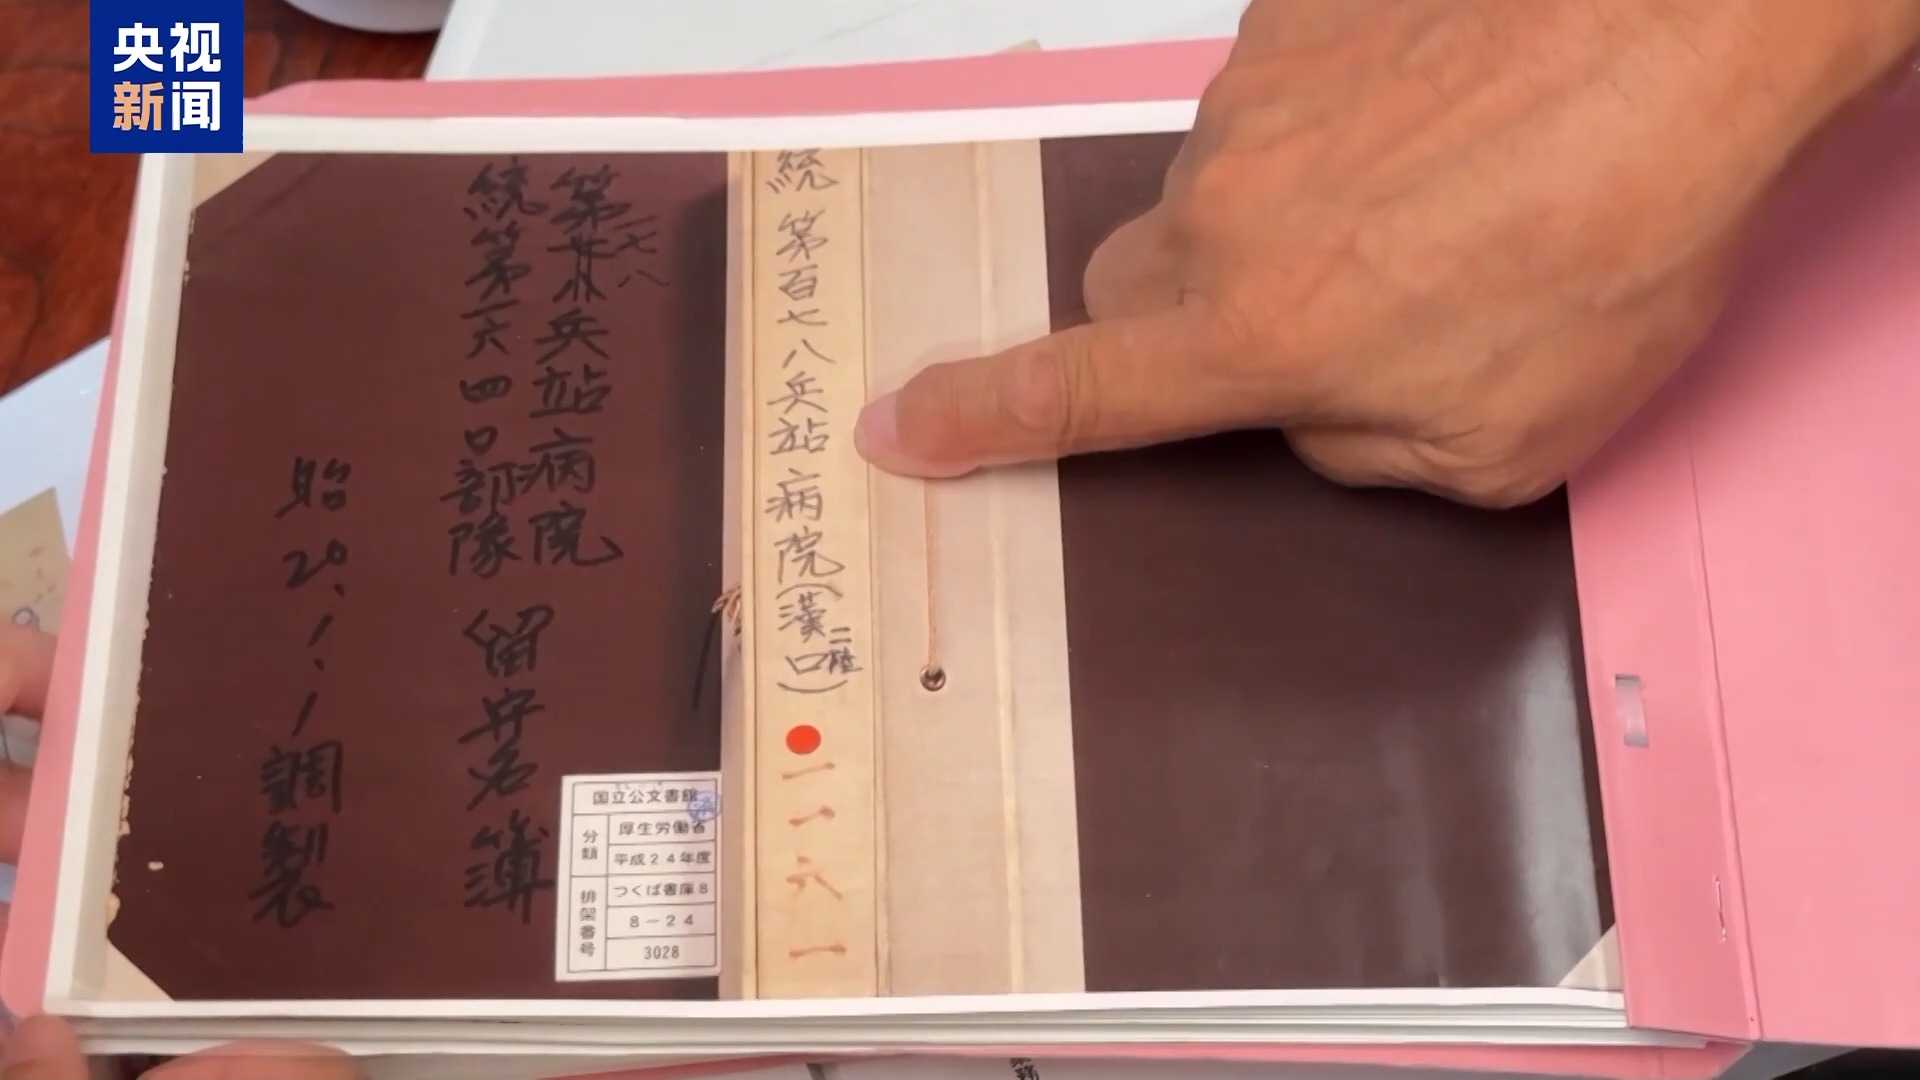 央视
新闻
統 第百七八兵站病院(漢口二陸)
一一六一
第一七八兵站病院
統第一六四〇部隊
留守名簿
昭20.1.1調製
国立公文書館
分類
厚生労働省
平成24年度
排架番号
つくば書庫8
8-24
3028